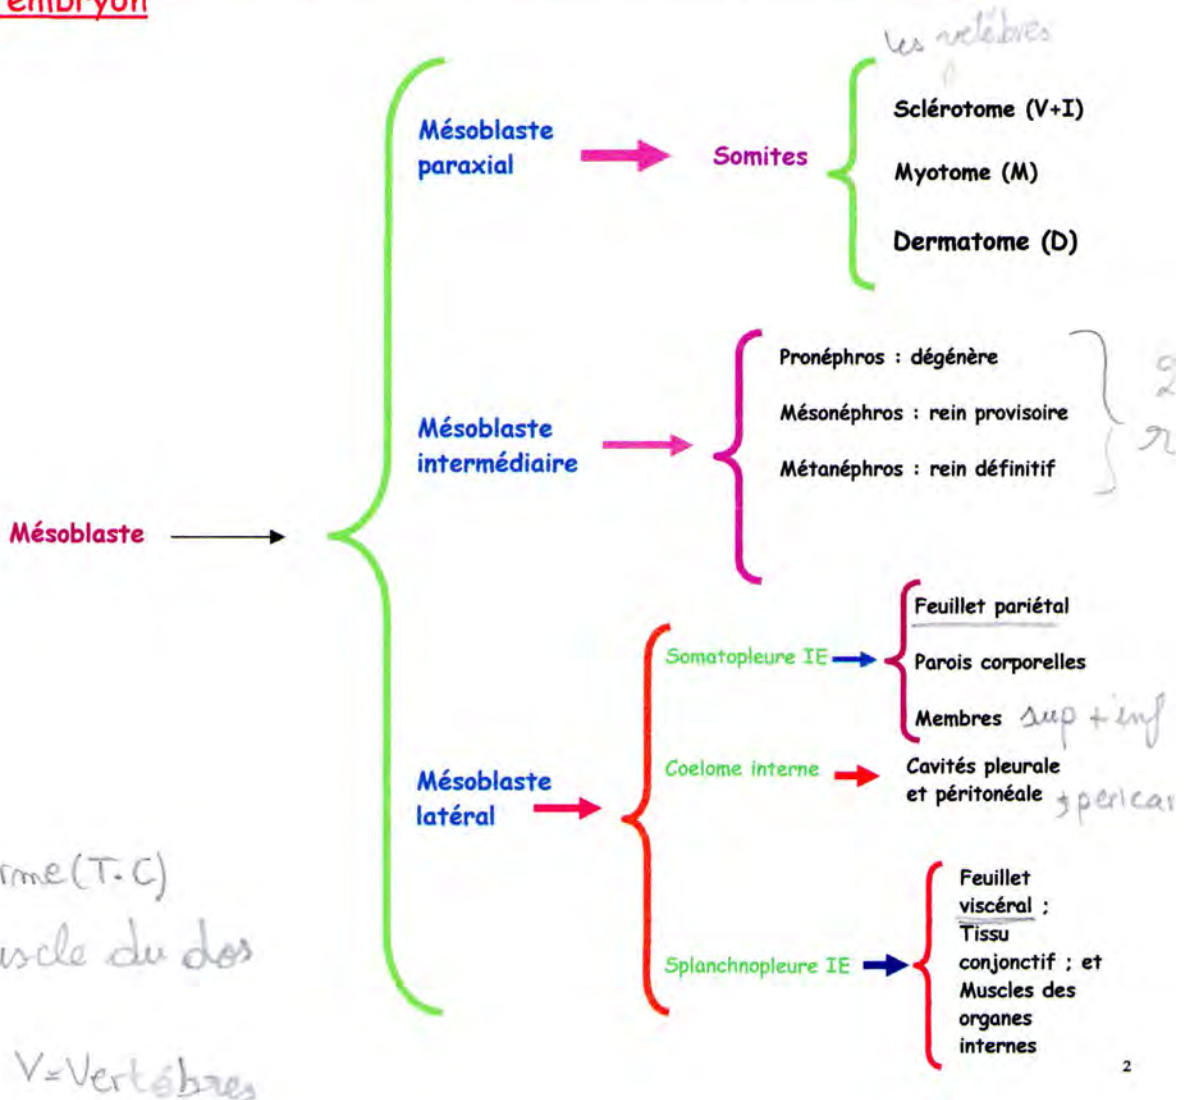 embryon
les vetébres
Mésoblaste
paraxial
Somites
Sclérotome (V+I)
Myotome (M)
Dermatome (D)
Mésoblaste
intermédiaire
Pronéphros : dégénère
Mésonéphros : rein provisoire
Métanéphros : rein définitif
2
r
Mésoblaste
Mésoblaste
latéral
Somatopleure IE
Feuillet pariétal
Parois corporelles
Membres sup + inf
Coelome interne
Cavités pleurale
et péritonéale
Splanchnopleure IE
Feuillet
viscéral ;
Tissu
conjonctif ; et
Muscles des
organes
internes
rme (T.C)
uscle du dos
V=Vertébres
2